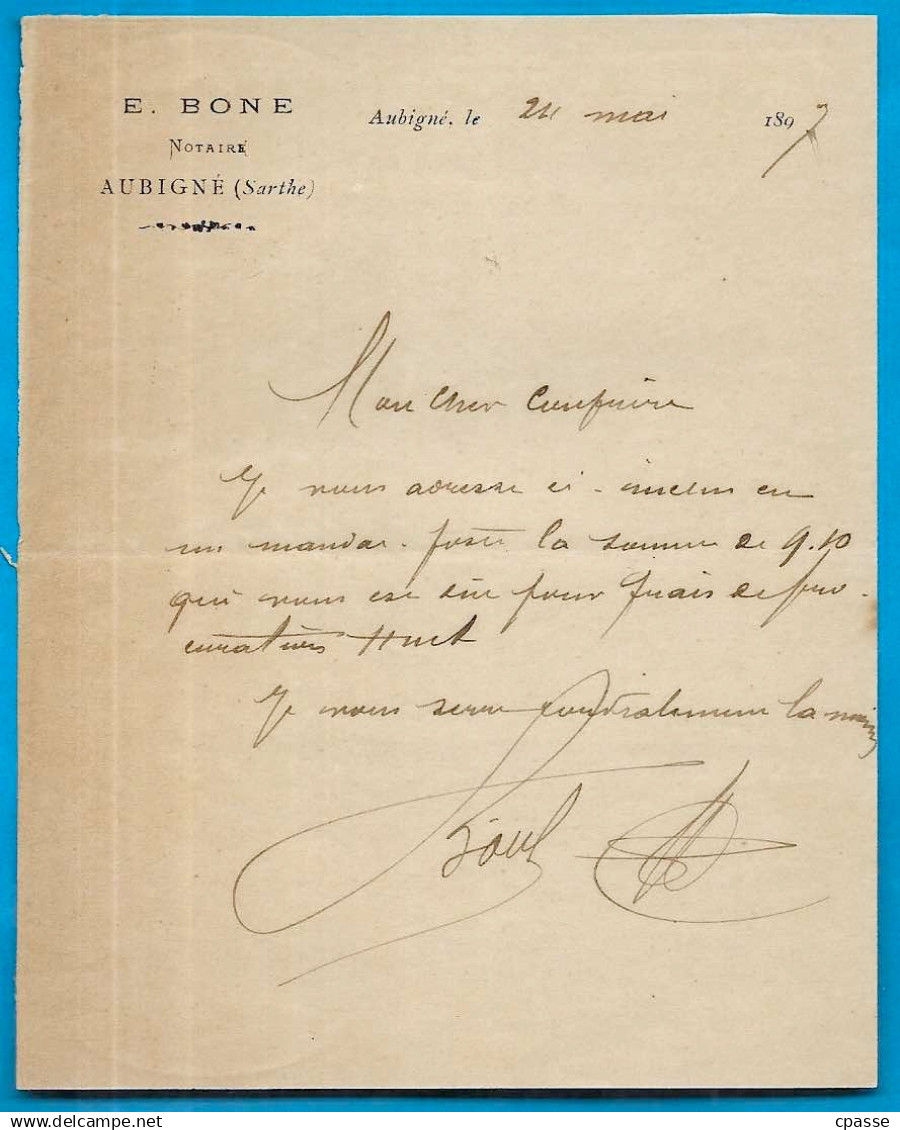 E. BONE
NOTAIRE
AUBIGNÉ (Sarthe)
Aubigné, le 24 mai 1897
Mon cher Confrère
Je vous adresse ci-inclus en
un mandat-poste la somme de 9.10
qui vous est dûe pour frais de pro-
curations Huet
Je vous serre cordialement la main
Bone
cpasse